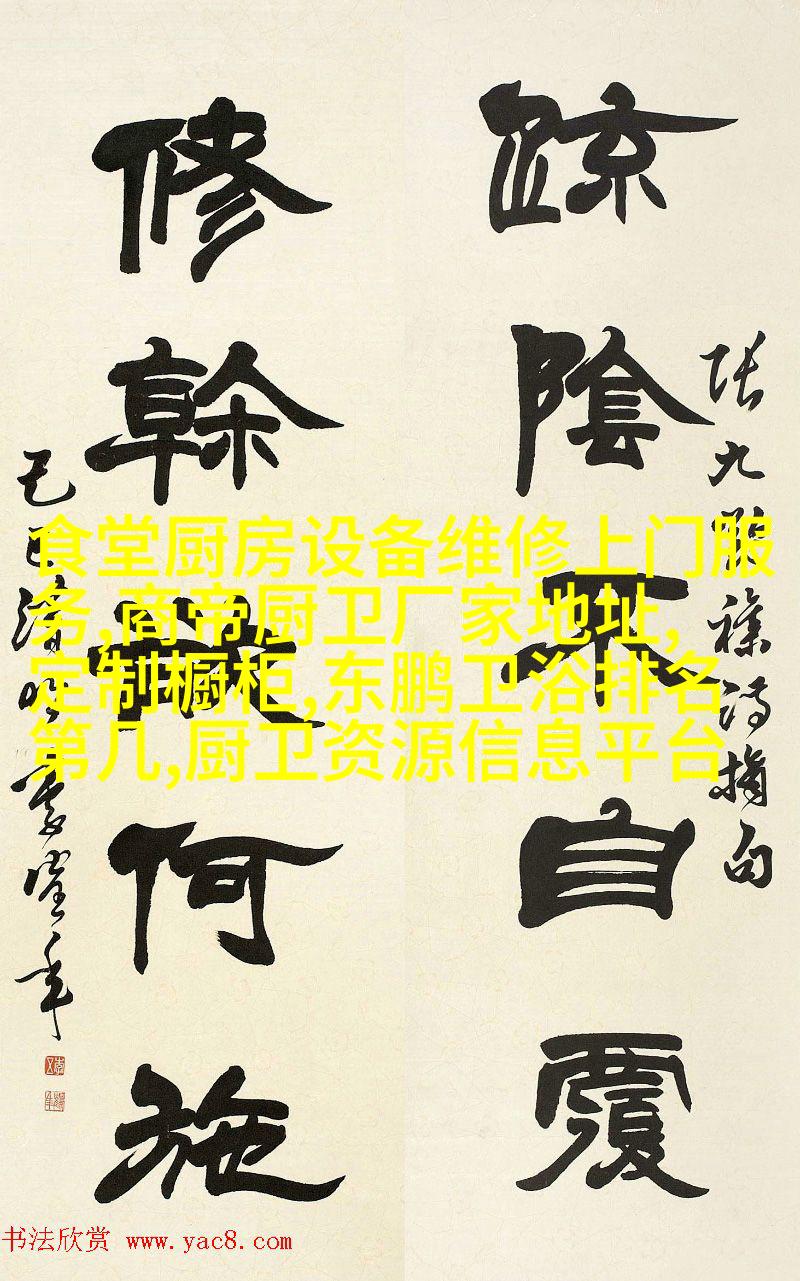 疎陰不自覆
張九齡雜詩摘句
修幹欲何施
己巳清明
食堂厨房设备维修上门服
务,商帝厨卫厂家地址,
定制橱柜,东鹏卫浴排名
第几,厨卫资源信息平台
书法欣赏 www.yac8.com